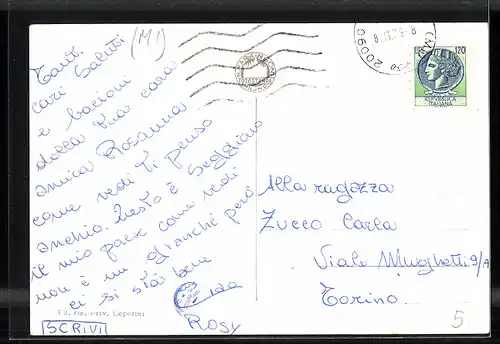 Tant.
(MI)
Cari Saluti
e bacioni
dalla tua cara
amica Rosanna
come vedi ti penso
anch'io. Questo è Seggiano
il mio paese come vedi
non è un granché però
ci si sta bene
Ciao
Rosy
SCRIVI
Alla ragazza
Zucco Carla
Viale Minghetti 9/A
Torino
5
120
REPUBBLICA
ITALIANA
Ed. Ris. Priv. Leporini